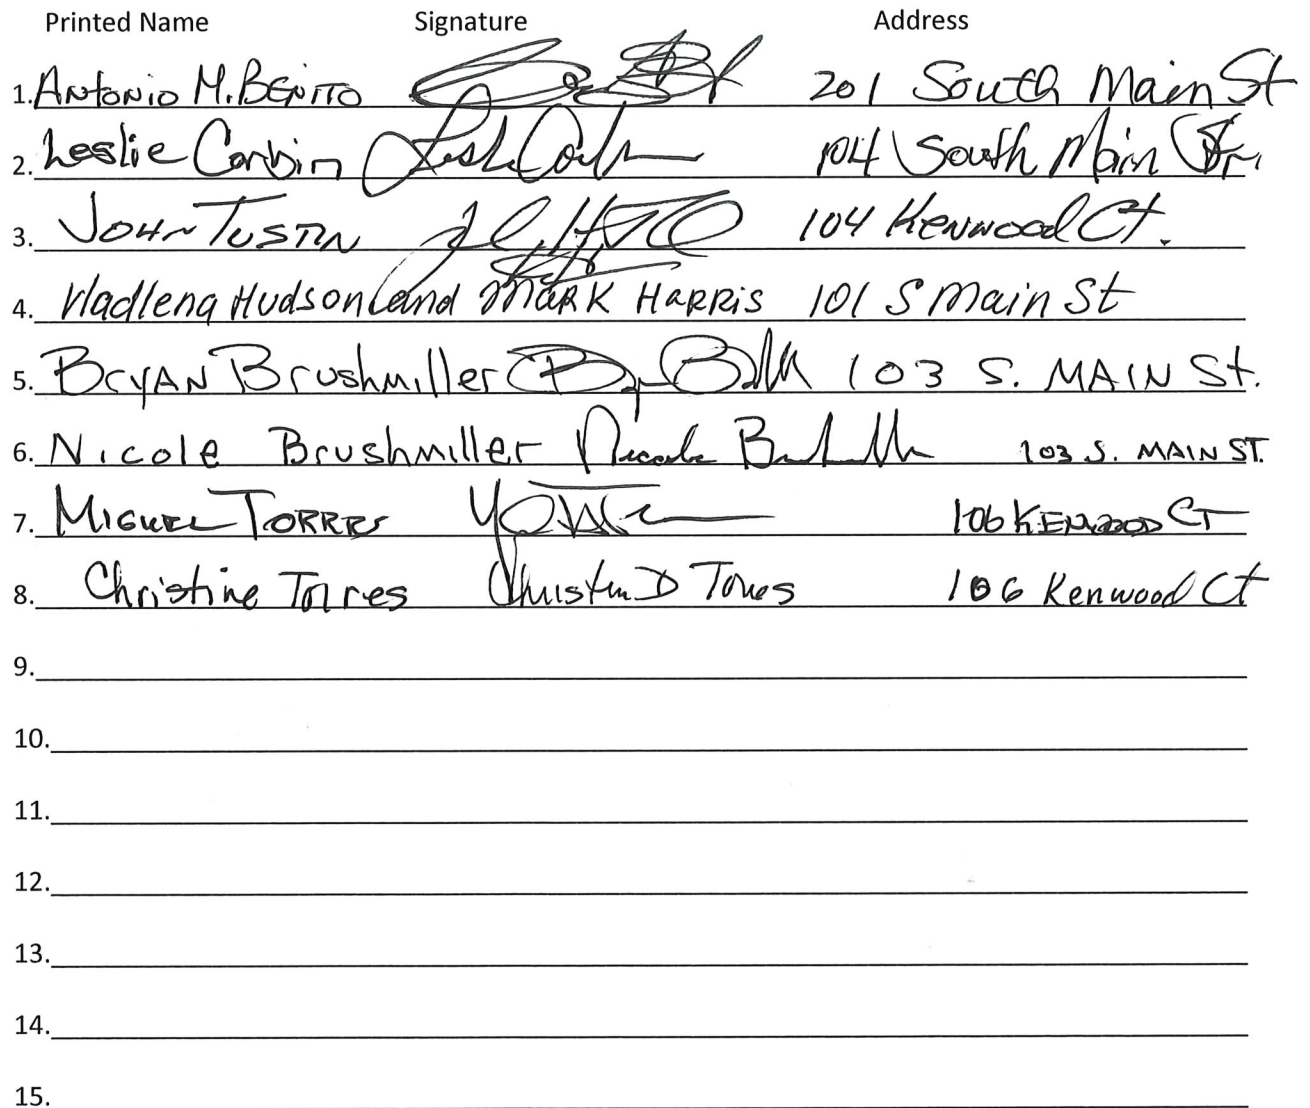 Printed Name Signature Address
1. Antonio M. Benito 201 South Main St
2. Leslie Corbin Leslie Corbin 104 South Main Str.
3. John Tustin 104 Kenwood Ct.
4. Vladlena Hudson and Mark Harris 101 S Main St
5. Bryan Brushmiller 103 S. MAIN St.
6. Nicole Brushmiller Nicole 103 S. MAIN ST.
7. Miguel Torres 106 Kenwood CT
8. Christine Torres Christine D Torres 106 Kenwood Ct
9.
10.
11.
12.
13.
14.
15.